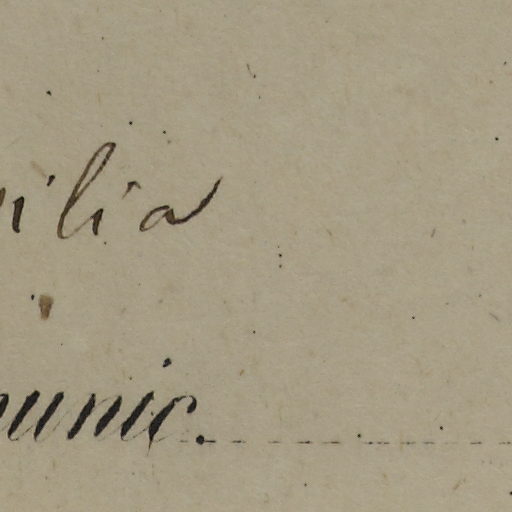 ilia
unic.